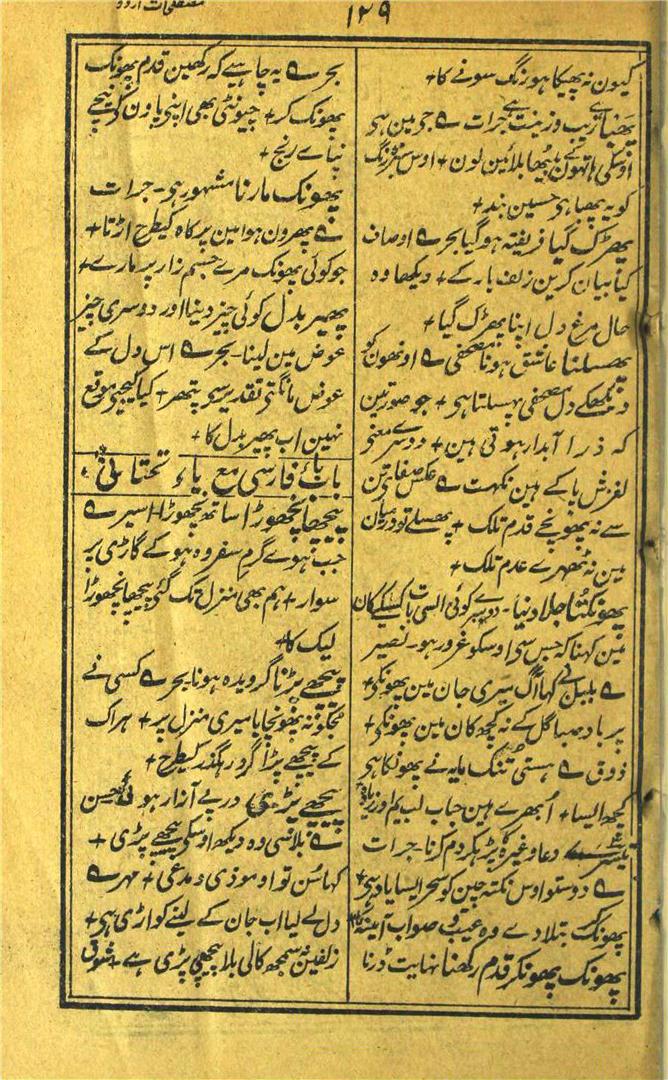 مصطلحات اردو
۱۲۹
کیون نہ پھیکا ہو رنگ سونے کا+
پھبنا زیب و زینت ہے جرات ے جو مین ہی
اوسکی ہاتھون بلائین لون + اوس سبز رنگ
کو یہ پھبا ہی حسین بند+
پھڑک گیا فریفتہ ہو گیا بحر ے اوصاف
کیا بیان کرین زلف یار کے + دیکھا وہ
حال مرغ دل اپنا پھڑک گیا+
پھسلنا عاشق ہونا مصحفی ے اونھون کو
دیکھکے دل مصحفی پھسلتا ہی + جو صورتین
کہ ذرا آبدار ہوتی ہین + دوسرے معنی
لغزش پا کے ہین نکہت ے عکس صفا تن
سے نہ پھونچے قدم تلک + پھسلے تو درمیان
مین نہ ٹھہرے عدم تلک+
پھونکنا جلا دینا - دوسرے کوئی ایسی بات کسیکے کان
مین کہنا کہ جس سی اوسکو غرور ہو - نصیر
ے بلبل نے کہا آگ سیری جان مین پھونکی+
پر باد صبا گل کے نہ کچھ کان مین پھونکی+
ذوق ے ہستی تنک مایہ نے پھونکا ہی
کچھ ایسا + اُبھرے ہین حباب لب یم اور زیادہ
تیسرے دعا وغیرہ پڑہکر دم کرنا - جرات
ے دوستو اوس نکتہ چین کو سحر ایسا یاد ہی+
پھونک بتلادے وہ عیب و صواب آئینہ کا+
پھونک پھونکر قدم رکھنا نہایت ڈرنا
بحر ے یہ چاہیے کہ رکھین قدم پھونک
پھونک کر + چیونٹی بھی اپنی پاون کے نیچے
نپاے رنج+
پھونک مارنا مشہور ہی - جرات
ے پھرون ہوا مین پر کاہ کیطرح اڑتا+
جو کوئی پھونک مرے جسم زار پر مارے+
پھیر بدل کوئی چیز دینا اور دوسری چیز
عوض مین لینا - بحر ے اس دل کے
عوض مانگتی تقدیر سے پتھر + کیا کیجیے موقع
نہین اب پھیر بدل کا+
باب بائے فارسی مع یاء تحتانی
پیچھا نچھوڑا ساتھ نچھوڑا اسیر ے
جب ہوے گرم سفر وہ ہو کے گاڑی پر
سوار + ہم بھی منزل تک گئی پیچھا نچھوڑا
لیک کا+
پیچھے پڑنا گرویدہ ہونا بحر ے کسی نے
تجکو نہ پھونچایا میری منزل پر + ہراک
کے پیچھے پڑا گرد رہگذر کیطرح+
پیچھے پڑی درپے آزار ہوئی محسن
ے بلا نسی وہ دیکھ اوسکی پیچھے پڑی+
کہا سُن تو او موذی و مدعی + مہر ے
دل لے لیا اب جان کے لینے کو اڑی ہی+
زلفین نہ سمجھ کالی بلا پیچھے پڑی ہے + شوق